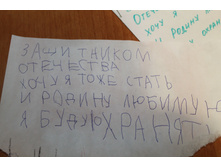 ЗАЩИТНИКОМ
ОТЕЧЕСТВА
ХОЧУ Я ТОЖЕ СТАТЬ
И РОДИНУ ЛЮБИМУЮ
Я БУДУ ОХРАНЯТЬ
ОТЕЧ
ХОЧУ Я
РОДИНУ
ОХРАН